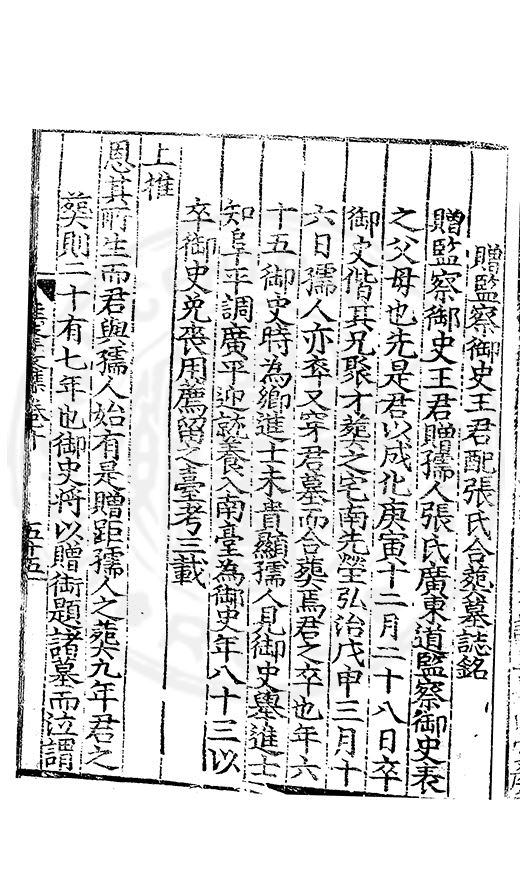 贈監察御史王君配張氏合葬墓誌銘
贈監察御史王君贈孺人張氏廣東道監察御史表
之父母也先是君以成化庚寅十二月二十八日卒
御史偕其兄聚才葬之宅南先塋弘治戊申三月十
六日孺人亦卒又穿君墓而合葬焉君之卒也年六
十五御史時為鄉進士未貴顯孺人見御史舉進士
知阜平調廣平迎就養入南臺為御史年八十三以
卒御史免喪用薦留之臺考三載
上推
恩其所生而君與孺人始有是贈距孺人之葬九年君之
葬則二十有七年也御史將以贈銜題諸墓而泣謂
五十五